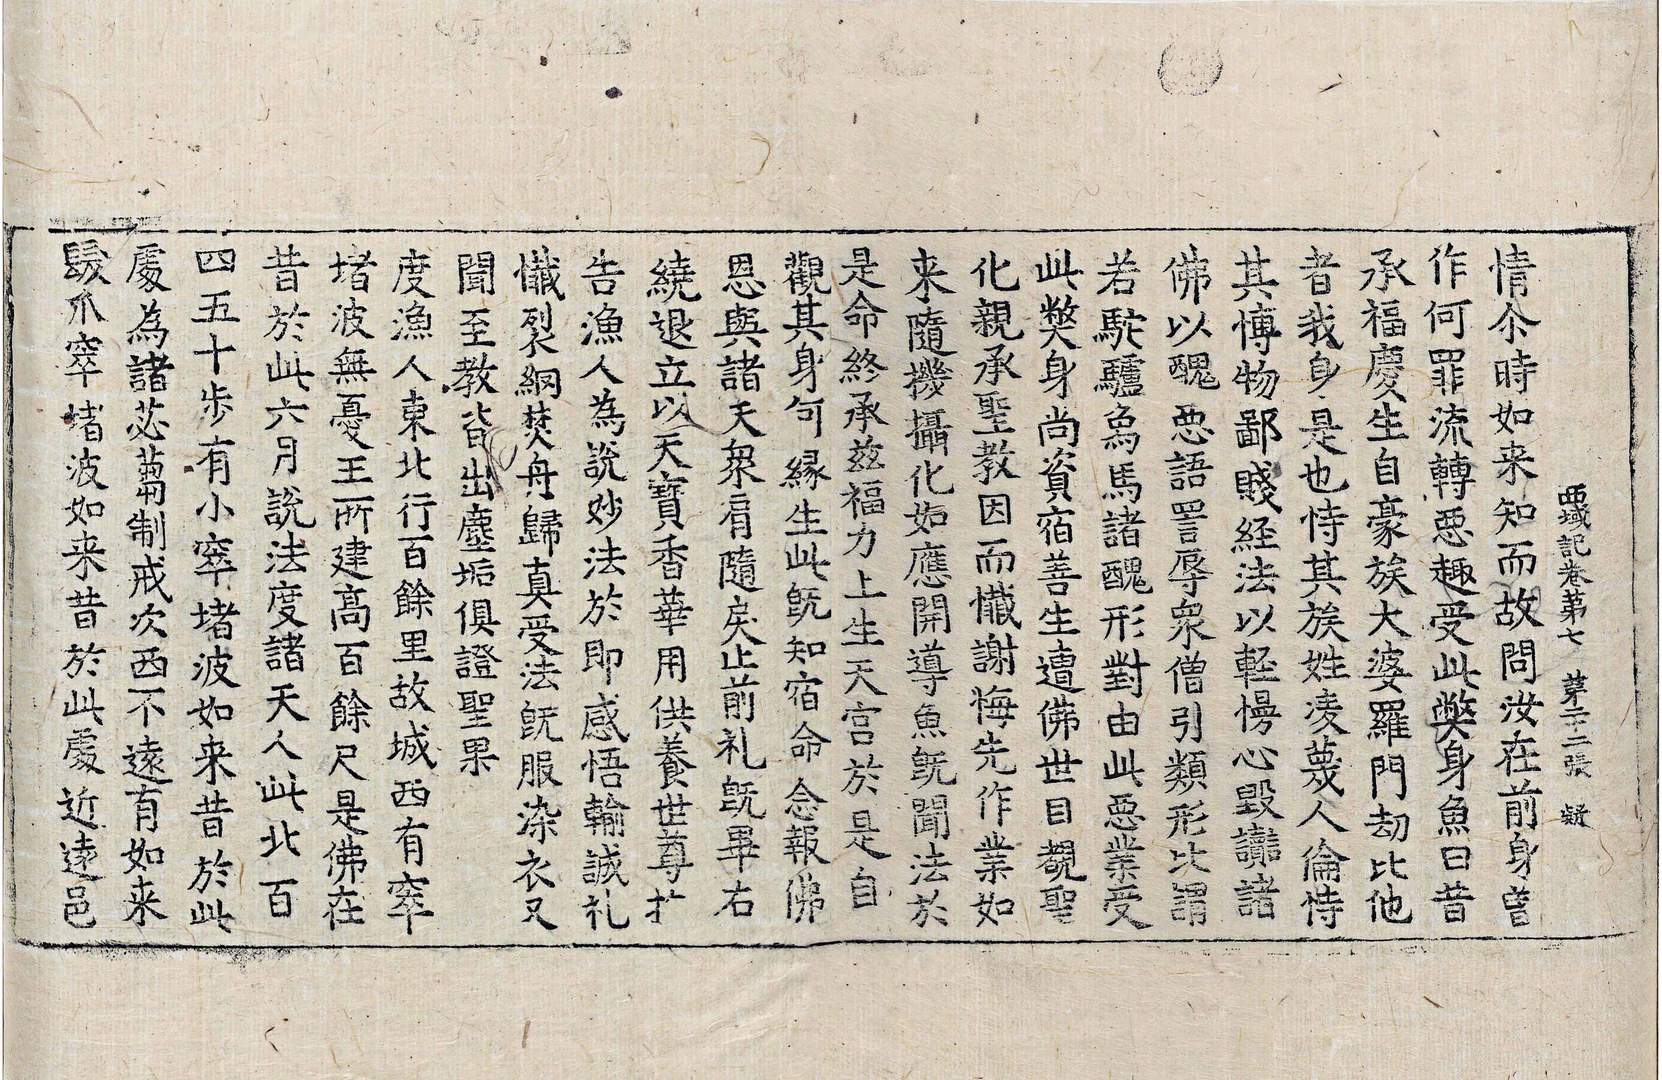 西域記卷第七 第二十二張 疑
情尒時如来知而故問汝在前身曽
作何罪流轉惡趣受此弊身魚曰昔
承福慶生自豪族大婆羅門刧比他
者我身是也恃其族姓凌蔑人倫恃
其愽物鄙賤経法以輕慢心毀讟諸
佛以醜惡語詈辱衆僧引類形比謂
若駝驢為馬諸醜形對由此惡業受
此弊身尚資宿善生遭佛世目覩聖
化親承聖教因而懴謝悔先作業如
来隨機攝化如應開導魚旣聞法於
是命終承兹福力上生天宫於是自
觀其身何縁生此旣知宿命念報佛
恩與諸天衆肩隨戾止前礼旣畢右
繞退立以天寶香華用供養世尊扩
告漁人為說妙法於即感悟輸誠礼
懴裂網焚舟歸真受法旣服染衣又
聞至教皆出塵垢俱證聖果
度漁人東北行百餘里故城西有窣
堵波無憂王所建髙百餘尺是佛在
昔於此六月說法度諸天人此北百
四五十步有小窣堵波如来昔於此
處為諸苾蒭制戒次西不遠有如来
髮爪窣堵波如来昔於此處近逺邑